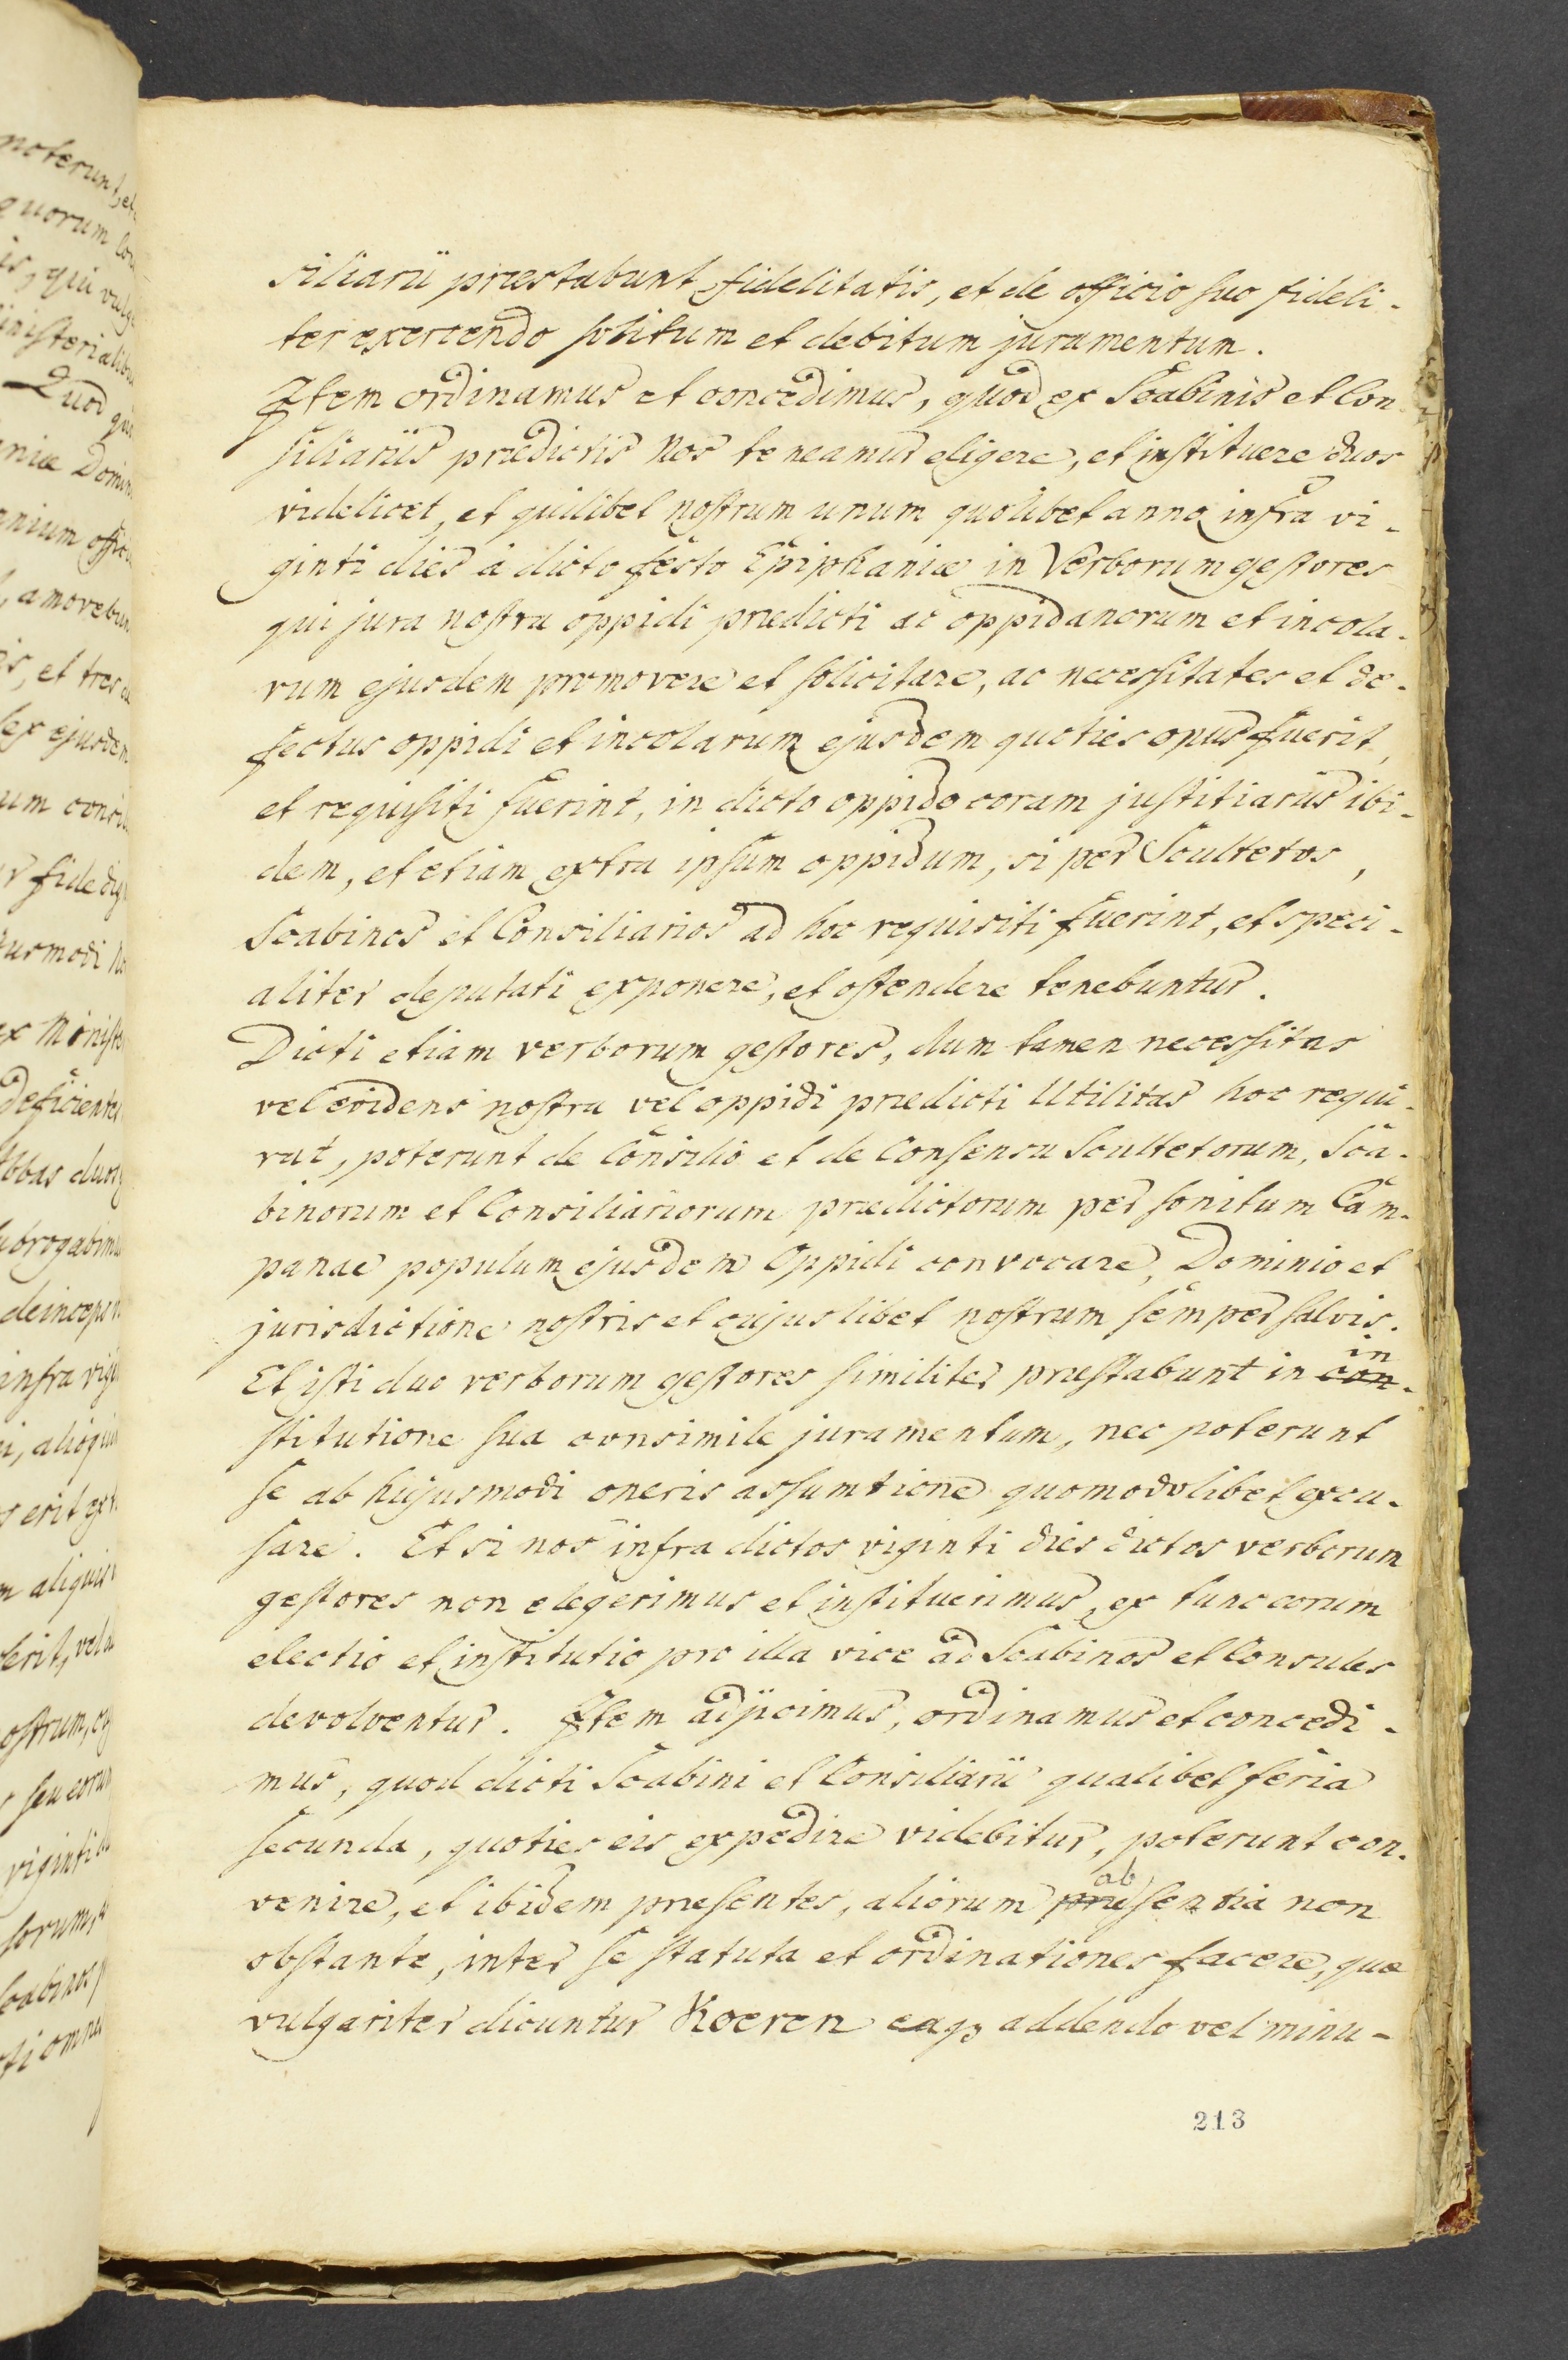 siliarii præstabunt fidelitatis, et de officio suo fideli-
ter exercendo solitum et debitum juramentum.
Item ordinamus et concedimus, quod ex Scabinis et Con-
siliariis prædictis Nos teneamur eligere, et instituere duos
videlicet, et quilibet nostrum unum quolibet anno infra vi-
ginti dies à dicto festo Epiphaniæ in Verborum gestores
qui jura nostra oppidi prædicti ac oppidanorum et incola-
rum ejusdem promovere et solicitare, ac necessitates et de-
fectus oppidi et incolarum ejusdem quoties opus fuerit,
et requisiti fuerint, in dicto oppido coram justitiariis ibi-
dem, et etiam extra ipsum oppidum, si per Scultetos,
Scabinos et Consiliarios ad hoc requisiti fuerint, et speci-
aliter deputati exponere, et ostendere tenebuntur.
Dicti etiam verborum gestores, dum tamen necessitas
vel evidens nostra vel oppidi prædicti Utilitas hoc requi-
rat, poterunt de Consilio et de Consensu Scultetorum, Sca-
binorum et Consiliariorum prædictorum per sonitum Cam-
panae populum ejusdem Oppidi convocare, Dominio et
jurisdictione nostris et cujuslibet nostrum semper salvis.
in
Et isti duo verborum gestores similiter præstabunt in con-
stitutione sua consimile juramentum, nec poterunt
se ab hujusmodi oneris assumtione quomodolibet excu-
sare. Et si nos infra dictos viginti dies dictos verborum
gestores non elegerimus et instituerimus, ex tunc eorum
electio et institutio pro illa vice ad Scabinos et Consules
devolventur. Item adjicimus, ordinamus et concedi-
mus, quod dicti Scabini et Consiliarii qualibet feria
secunda, quoties eis expedire videbitur, poterunt con-
ab
venire, et ibidem præsentes, aliorum præsentia non
obstante, inter se statuta et ordinationes facere, quæ
vulgariter dicuntur Koeren eaq3 addendo vel minu-
213